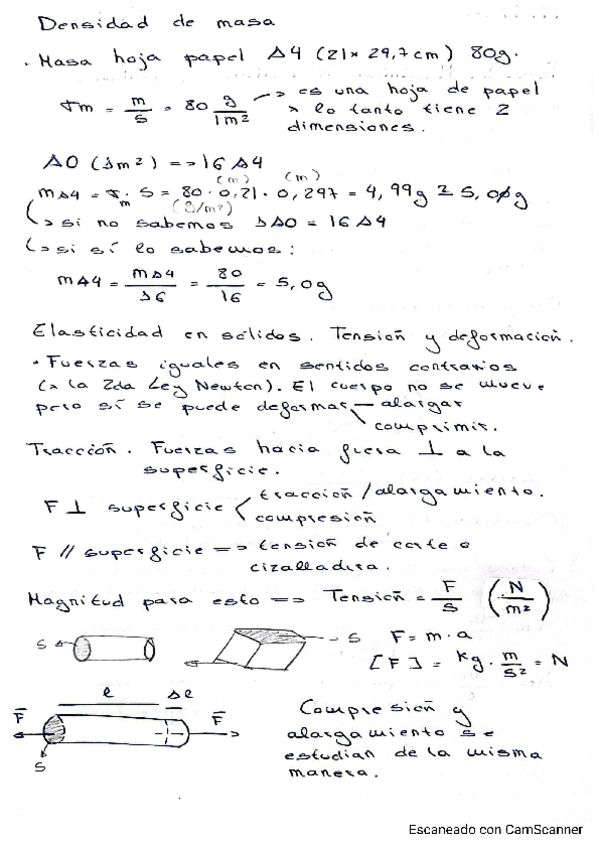 Densidad de masa
· Masa hoja papel A4 (21 × 29,7 cm) 80g.
σm = m/s = 80 g/1m² → es una hoja de papel
x lo tanto tiene 2
dimensiones.
A0 (1m²) => 16 A4
(m) (m)
mA4 = σm · S = 80 · 0,21 · 0,297 = 4,99g ≅ 5,0g
(g/m²)
↳ si no sabemos 1A0 = 16A4
↳ si sí lo sabemos:
mA4 = mA4/16 = 80/16 = 5,0g
Elasticidad en sólidos. Tensión y deformación.
· Fuerzas iguales en sentidos contrarios
(x la 2da Ley Newton). El cuerpo no se mueve
pero sí se puede deformar — alargar
comprimir.
Tracción. Fuerzas hacia fuera ⊥ a la
superficie.
F ⊥ superficie < tracción/alargamiento.
compresión
F // superficie => tensión de corte o
cizalladura.
Magnitud para esto => Tensión = F/S (N/m²)
S
S
F = m · a
[F] = kg · m/s² = N
l Δl
F F
S
Compresión y
alargamiento se
estudian de la misma
manera.
Escaneado con CamScanner